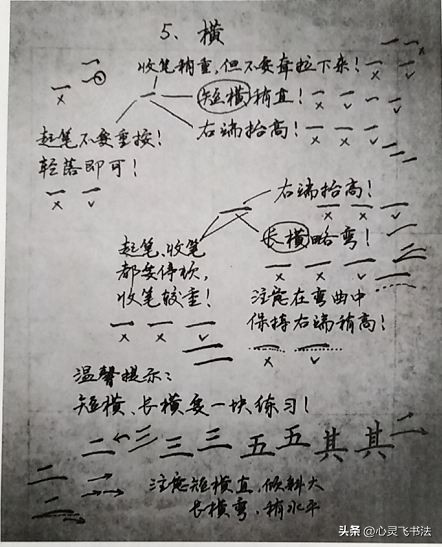 5、横
收笔稍重,但不要耷拉下来!
短横稍直!
起笔不要重按!
右端抬高!
轻落即可!
右端抬高!
长横略弯!
起笔、收笔
都要停顿,
收笔较重!
注意在弯曲中
保持右端稍高!
温馨提示:
短横、长横要一块练习!
二 三 三 三 五 五 其 其 二
二
二
注意短横直,倾斜大
长横弯,稍水平
头条 @心灵飞书法